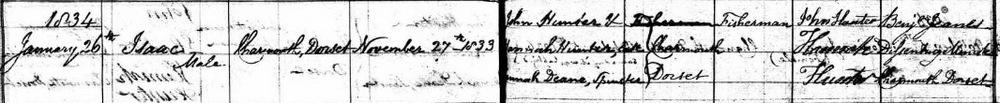 1834
January 26th Isaac Charmouth, Dorset November 27th 1833
Male
John Hunter & Fisherman John Hunter Benj. Jeanes
Hannah Hunter, late Charmouth Hannah Dissenting Minister
Hannah Deane, Spinster Dorset Hunter Charmouth Dorset